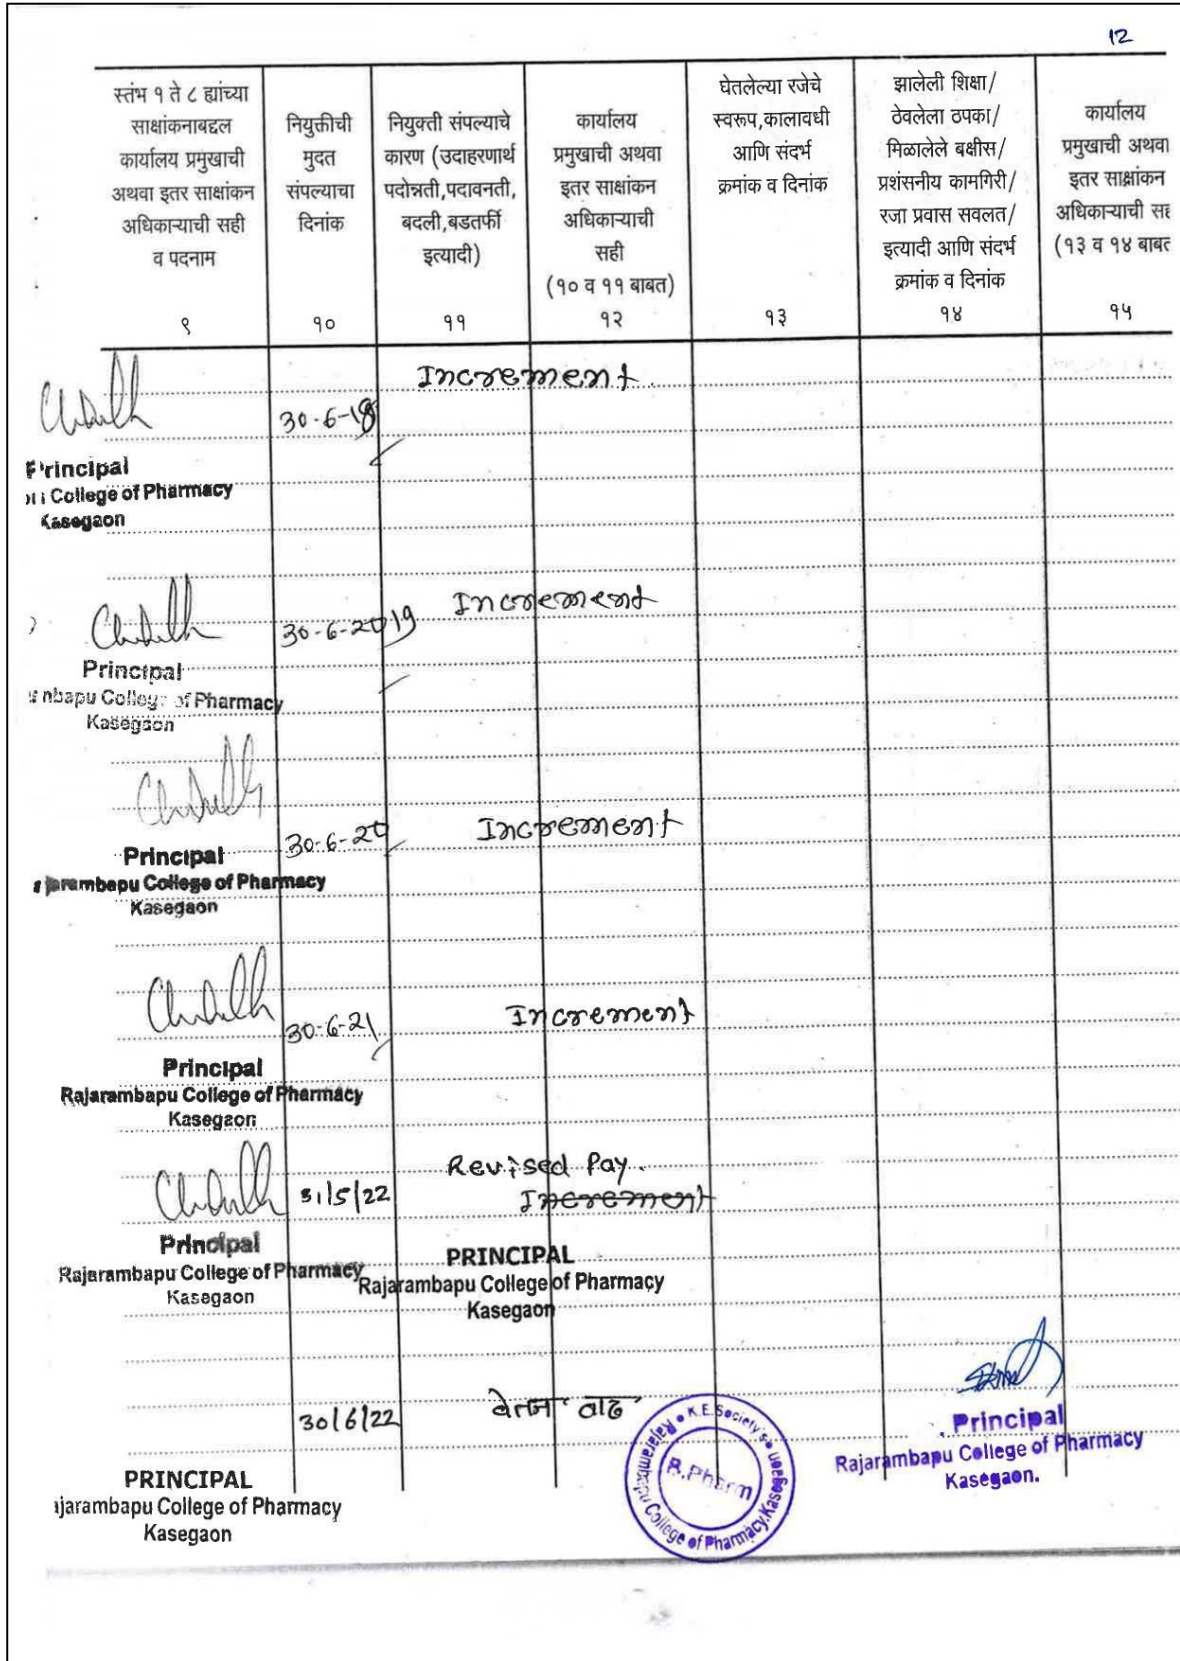 12
स्तंभ १ ते ८ ह्यांच्या
साक्षांकनाबद्दल
कार्यालय प्रमुखाची
अथवा इतर साक्षांकन
अधिकाऱ्याची सही
व पदनाम
९
नियुक्तीची
मुदत
संपल्याचा
दिनांक
१०
नियुक्ती संपल्याचे
कारण (उदाहरणार्थ
पदोन्नती,पदावनती,
बदली,बडतर्फी
इत्यादी)
११
कार्यालय
प्रमुखाची अथवा
इतर साक्षांकन
अधिकाऱ्याची
सही
(१० व ११ बाबत)
१२
घेतलेल्या रजेचे
स्वरूप,कालावधी
आणि संदर्भ
क्रमांक व दिनांक
१३
झालेली शिक्षा/
ठेवलेला ठपका/
मिळालेले बक्षीस/
प्रशंसनीय कामगिरी/
रजा प्रवास सवलत/
इत्यादी आणि संदर्भ
क्रमांक व दिनांक
१४
कार्यालय
प्रमुखाची अथवा
इतर साक्षांकन
अधिकाऱ्याची
(१३ व १४ बाबत
१५
Increment
30-6-18
Principal
College of Pharmacy
Kasegaon
Increment
30-6-2019
Principal
nbapu College of Pharmacy
Kasegaon
Increment
30-6-20
Principal
rambapu College of Pharmacy
Kasegaon
Increment
30-6-21
Principal
Rajarambapu College of Pharmacy
Kasegaon
Revised Pay.
31/5/22 Increment
Principal
Rajarambapu College of Pharmacy
Kasegaon
PRINCIPAL
Rajarambapu College of Pharmacy
Kasegaon
30/6/22 वेतन वाढ
K.E.Society's
Rajarambapu College of Pharmacy,Kasegaon
B.Pharm
Principal
Rajarambapu College of Pharmacy
Kasegaon.
PRINCIPAL
ajarambapu College of Pharmacy
Kasegaon